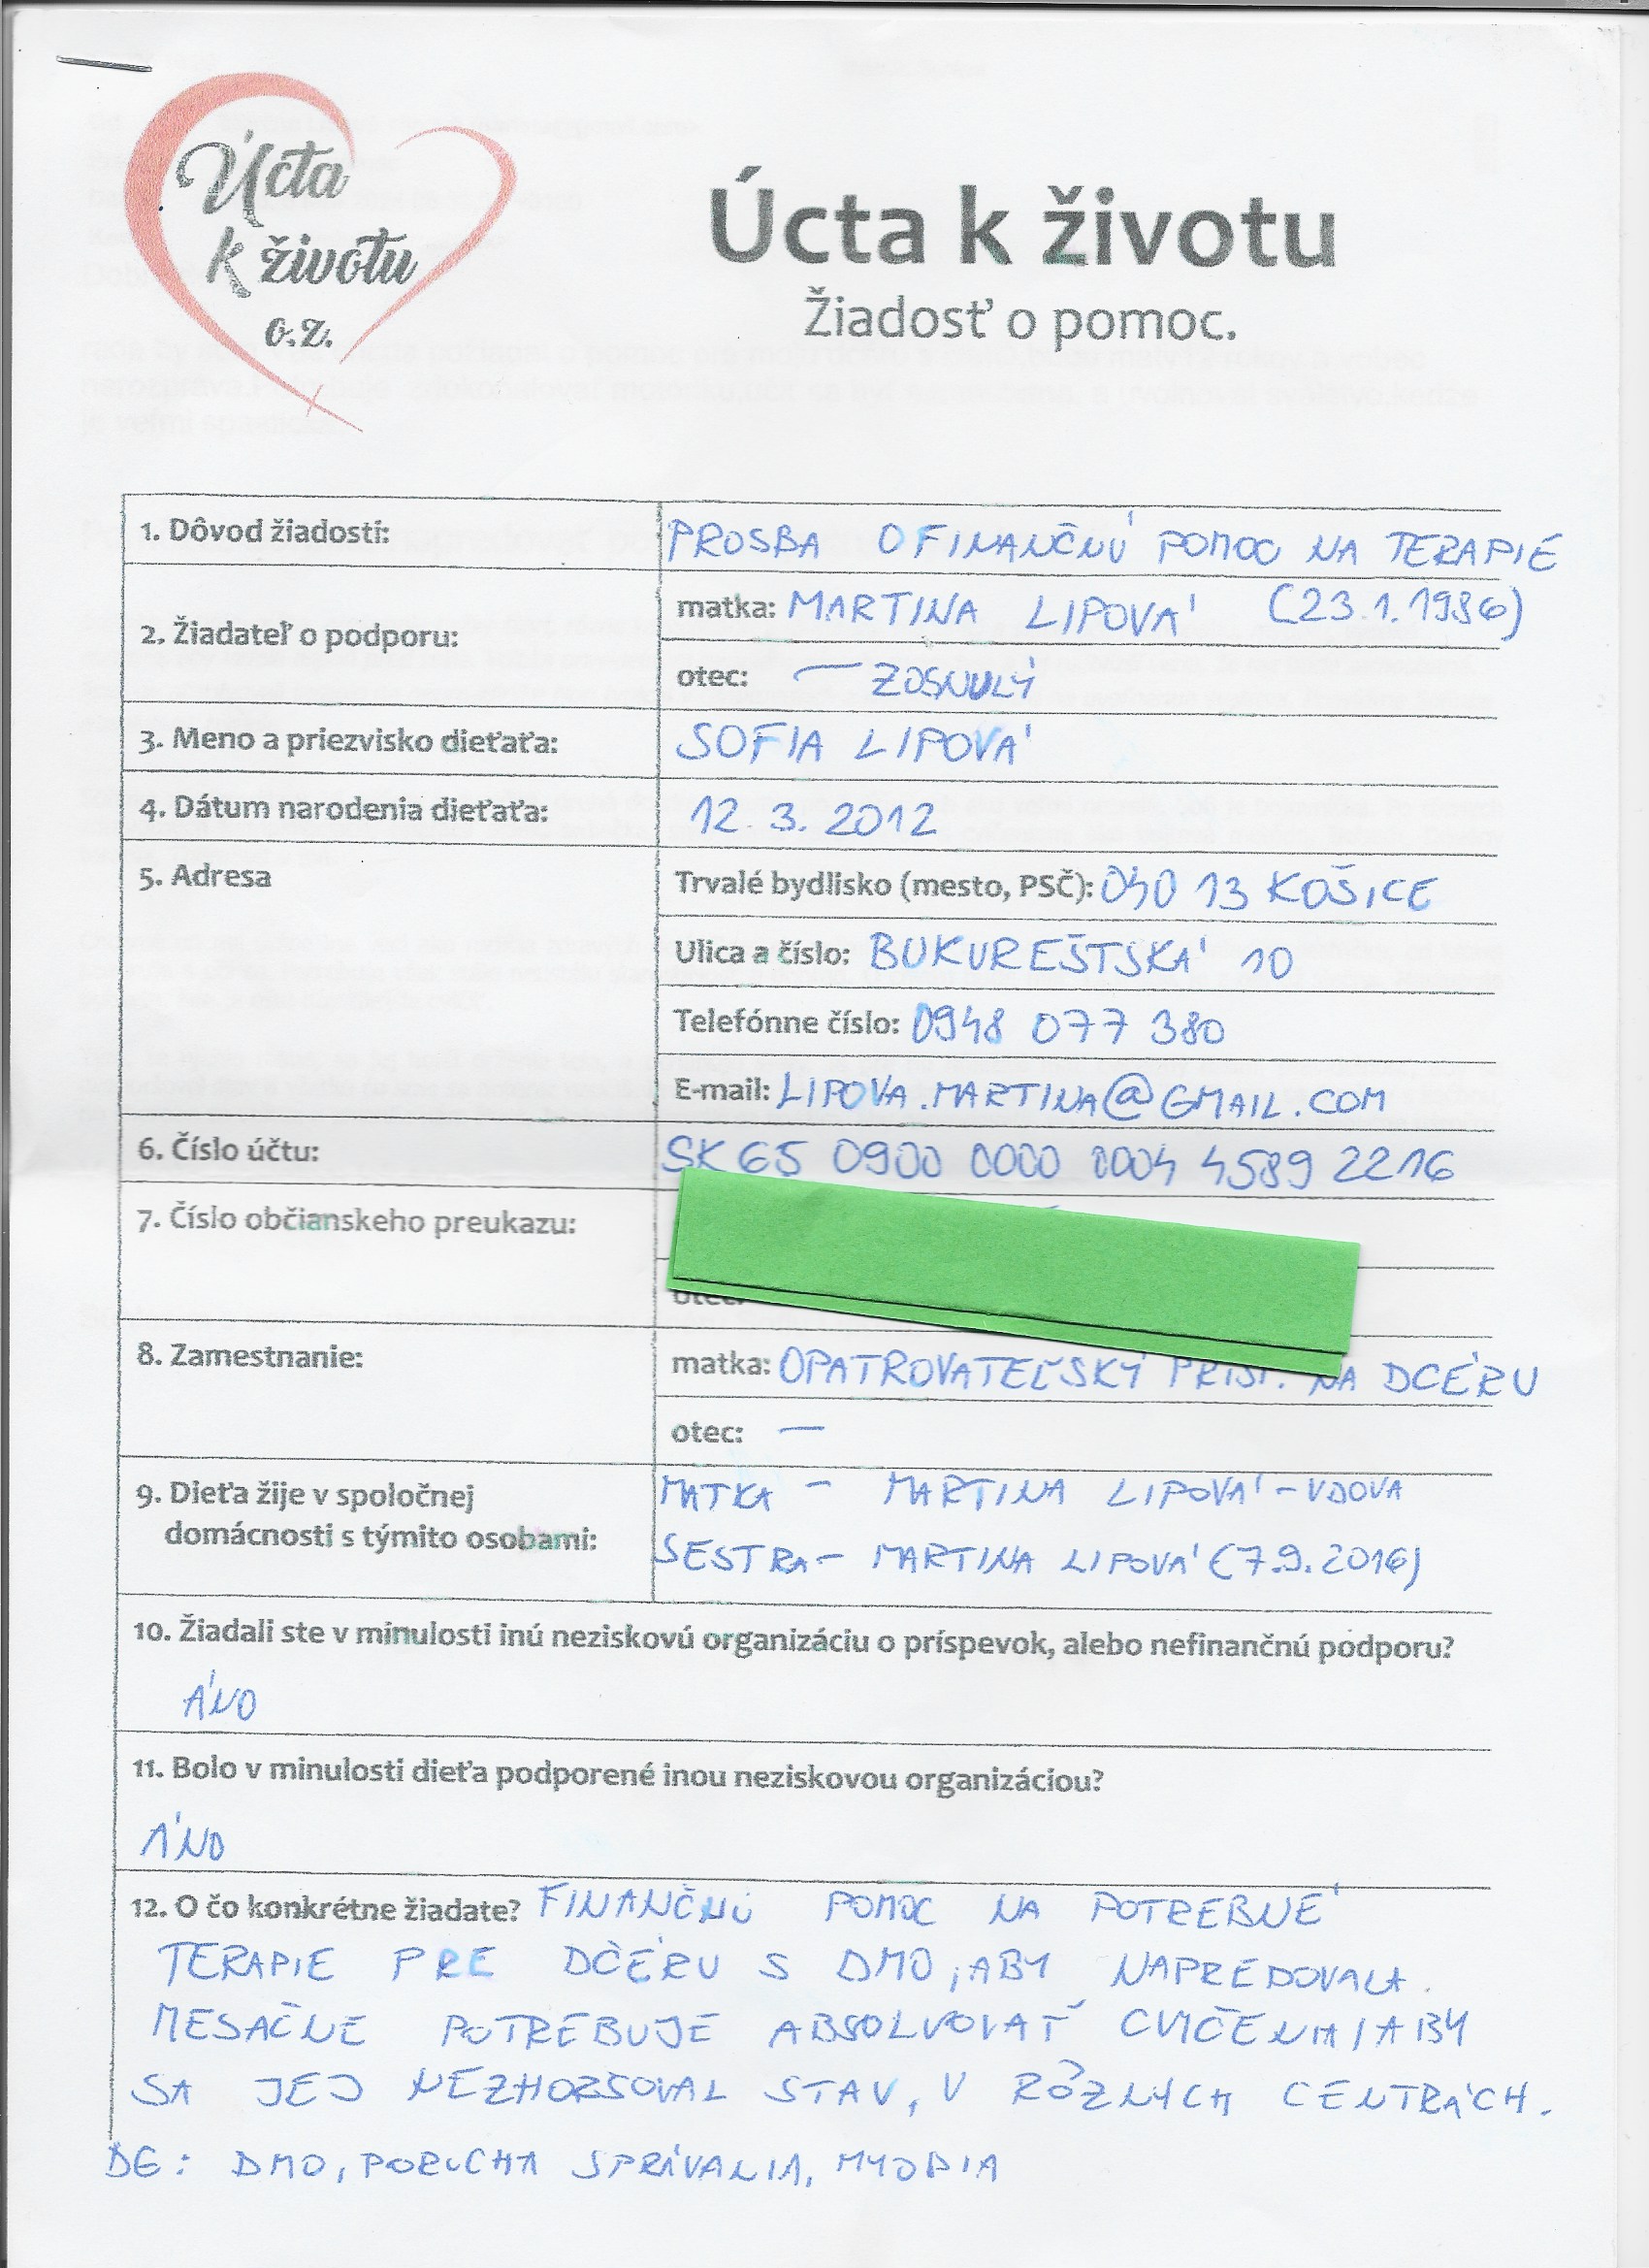 Úcta
k životu
o.z.
Úcta k životu
Žiadosť o pomoc.
1. Dôvod žiadosti: PROSBA O FINANČNÚ POMOC NA TERAPIE
2. Žiadateľ o podporu:
matka: MARTINA LIPOVÁ (23.1.1986)
otec: — ZOSNULÝ
3. Meno a priezvisko dieťaťa: SOFIA LIPOVÁ
4. Dátum narodenia dieťaťa: 12. 3. 2012
5. Adresa
Trvalé bydlisko (mesto, PSČ): 040 13 KOŠICE
Ulica a číslo: BUKUREŠTSKÁ 10
Telefónne číslo: 0948 077 380
E-mail: LIPOVA.MARTINA@GMAIL.COM
6. Číslo účtu: SK65 0900 0000 0004 4589 2216
7. Číslo občianskeho preukazu:
otec:
8. Zamestnanie:
matka: OPATROVATEĽSKÝ PRÍSP. NA DCÉRU
otec: —
9. Dieťa žije v spoločnej
domácnosti s týmito osobami:
MATKA – MARTINA LIPOVÁ – VDOVA
SESTRA – MARTINA LIPOVÁ (7.9.2016)
10. Žiadali ste v minulosti inú neziskovú organizáciu o príspevok, alebo nefinančnú podporu?
ÁNO
11. Bolo v minulosti dieťa podporené inou neziskovou organizáciou?
ÁNO
12. O čo konkrétne žiadate? FINANČNÚ POMOC NA POTREBNÉ
TERAPIE PRE DCÉRU S DMO, ABY NAPREDOVALA.
MESAČNE POTREBUJE ABSOLVOVAŤ CVIČENIA, ABY
SA JEJ NEZHORŠOVAL STAV, V RÔZNYCH CENTRÁCH.
DG: DMO, PORUCHA SPRÁVANIA, MYOPIA